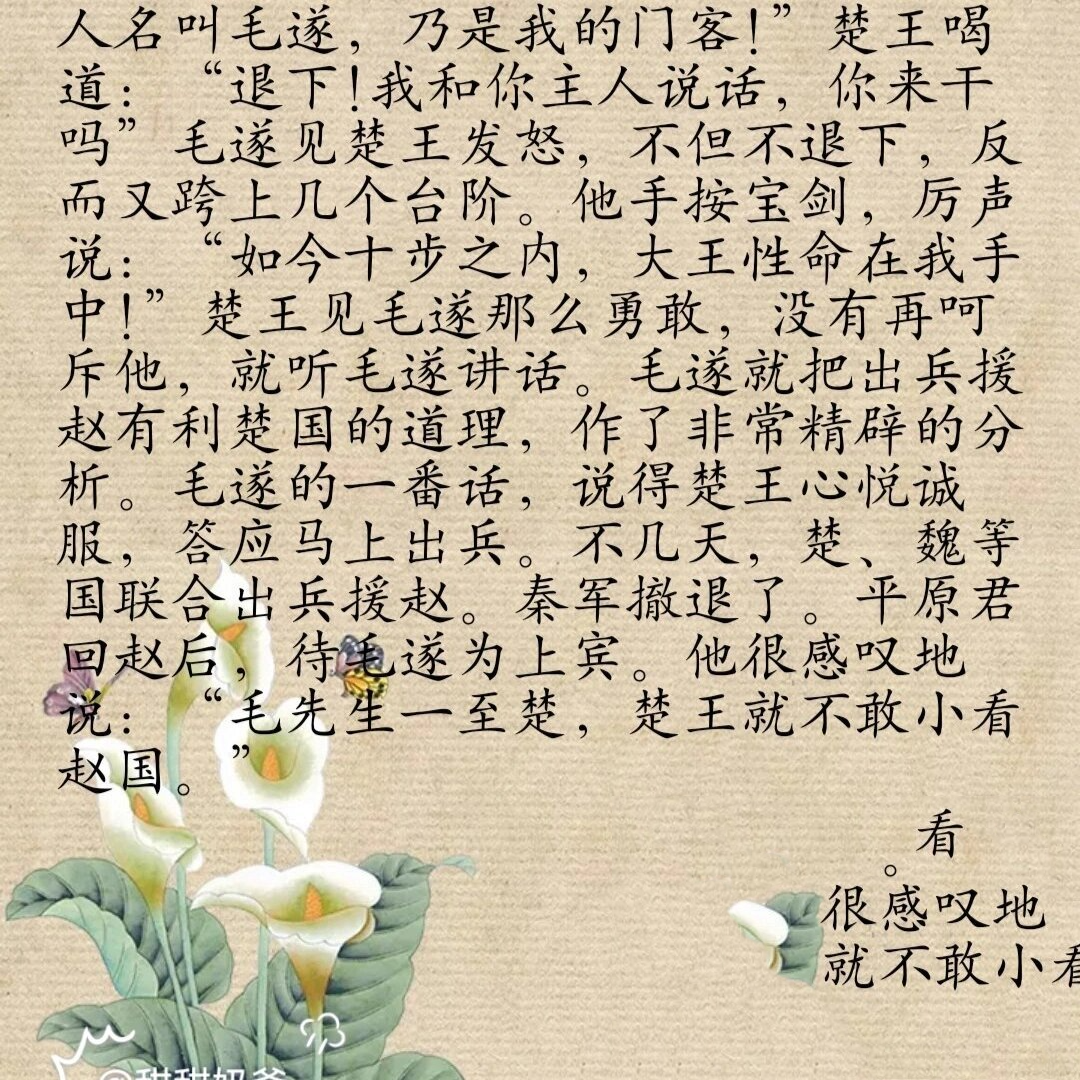 人名叫毛遂，乃是我的门客！”楚王喝
道：“退下！我和你主人说话，你来干
吗”毛遂见楚王发怒，不但不退下，反
而又跨上几个台阶。他手按宝剑，厉声
说：“如今十步之内，大王性命在我手
中！”楚王见毛遂那么勇敢，没有再呵
斥他，就听毛遂讲话。毛遂就把出兵援
赵有利楚国的道理，作了非常精辟的分
析。毛遂的一番话，说得楚王心悦诚
服，答应马上出兵。不几天，楚、魏等
国联合出兵援赵。秦军撤退了。平原君
回赵后，待毛遂为上宾。他很感叹地
说：“毛先生一至楚，楚王就不敢小看
赵国。”
看
。
很感叹地
就不敢小看
@甜甜奶爸